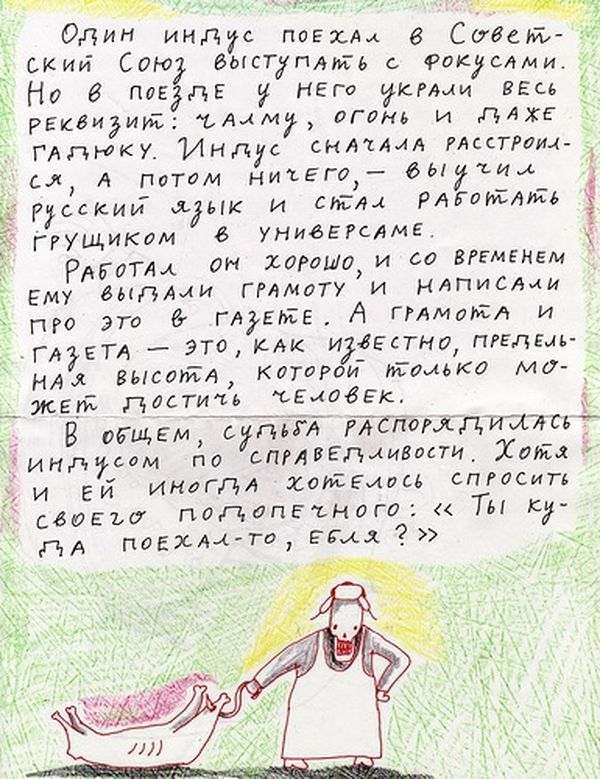 Один индус поехал в Совет-
ский Союз выступать с фокусами.
Но в поезде у него украли весь
реквизит: чалму, огонь и даже
гадюку. Индус сначала расстроил-
ся, а потом ничего, – выучил
русский язык и стал работать
грущиком в универсаме.
Работал он хорошо, и со временем
ему выдали грамоту и написали
про это в газете. А грамота и
газета — это, как известно, предель-
ная высота, которой только мо-
жет достичь человек.
В общем, судьба распорядилась
индусом по справедливости. Хотя
и ей иногда хотелось спросить
своего подопечного: «Ты ку-
да поехал-то, ебля?»